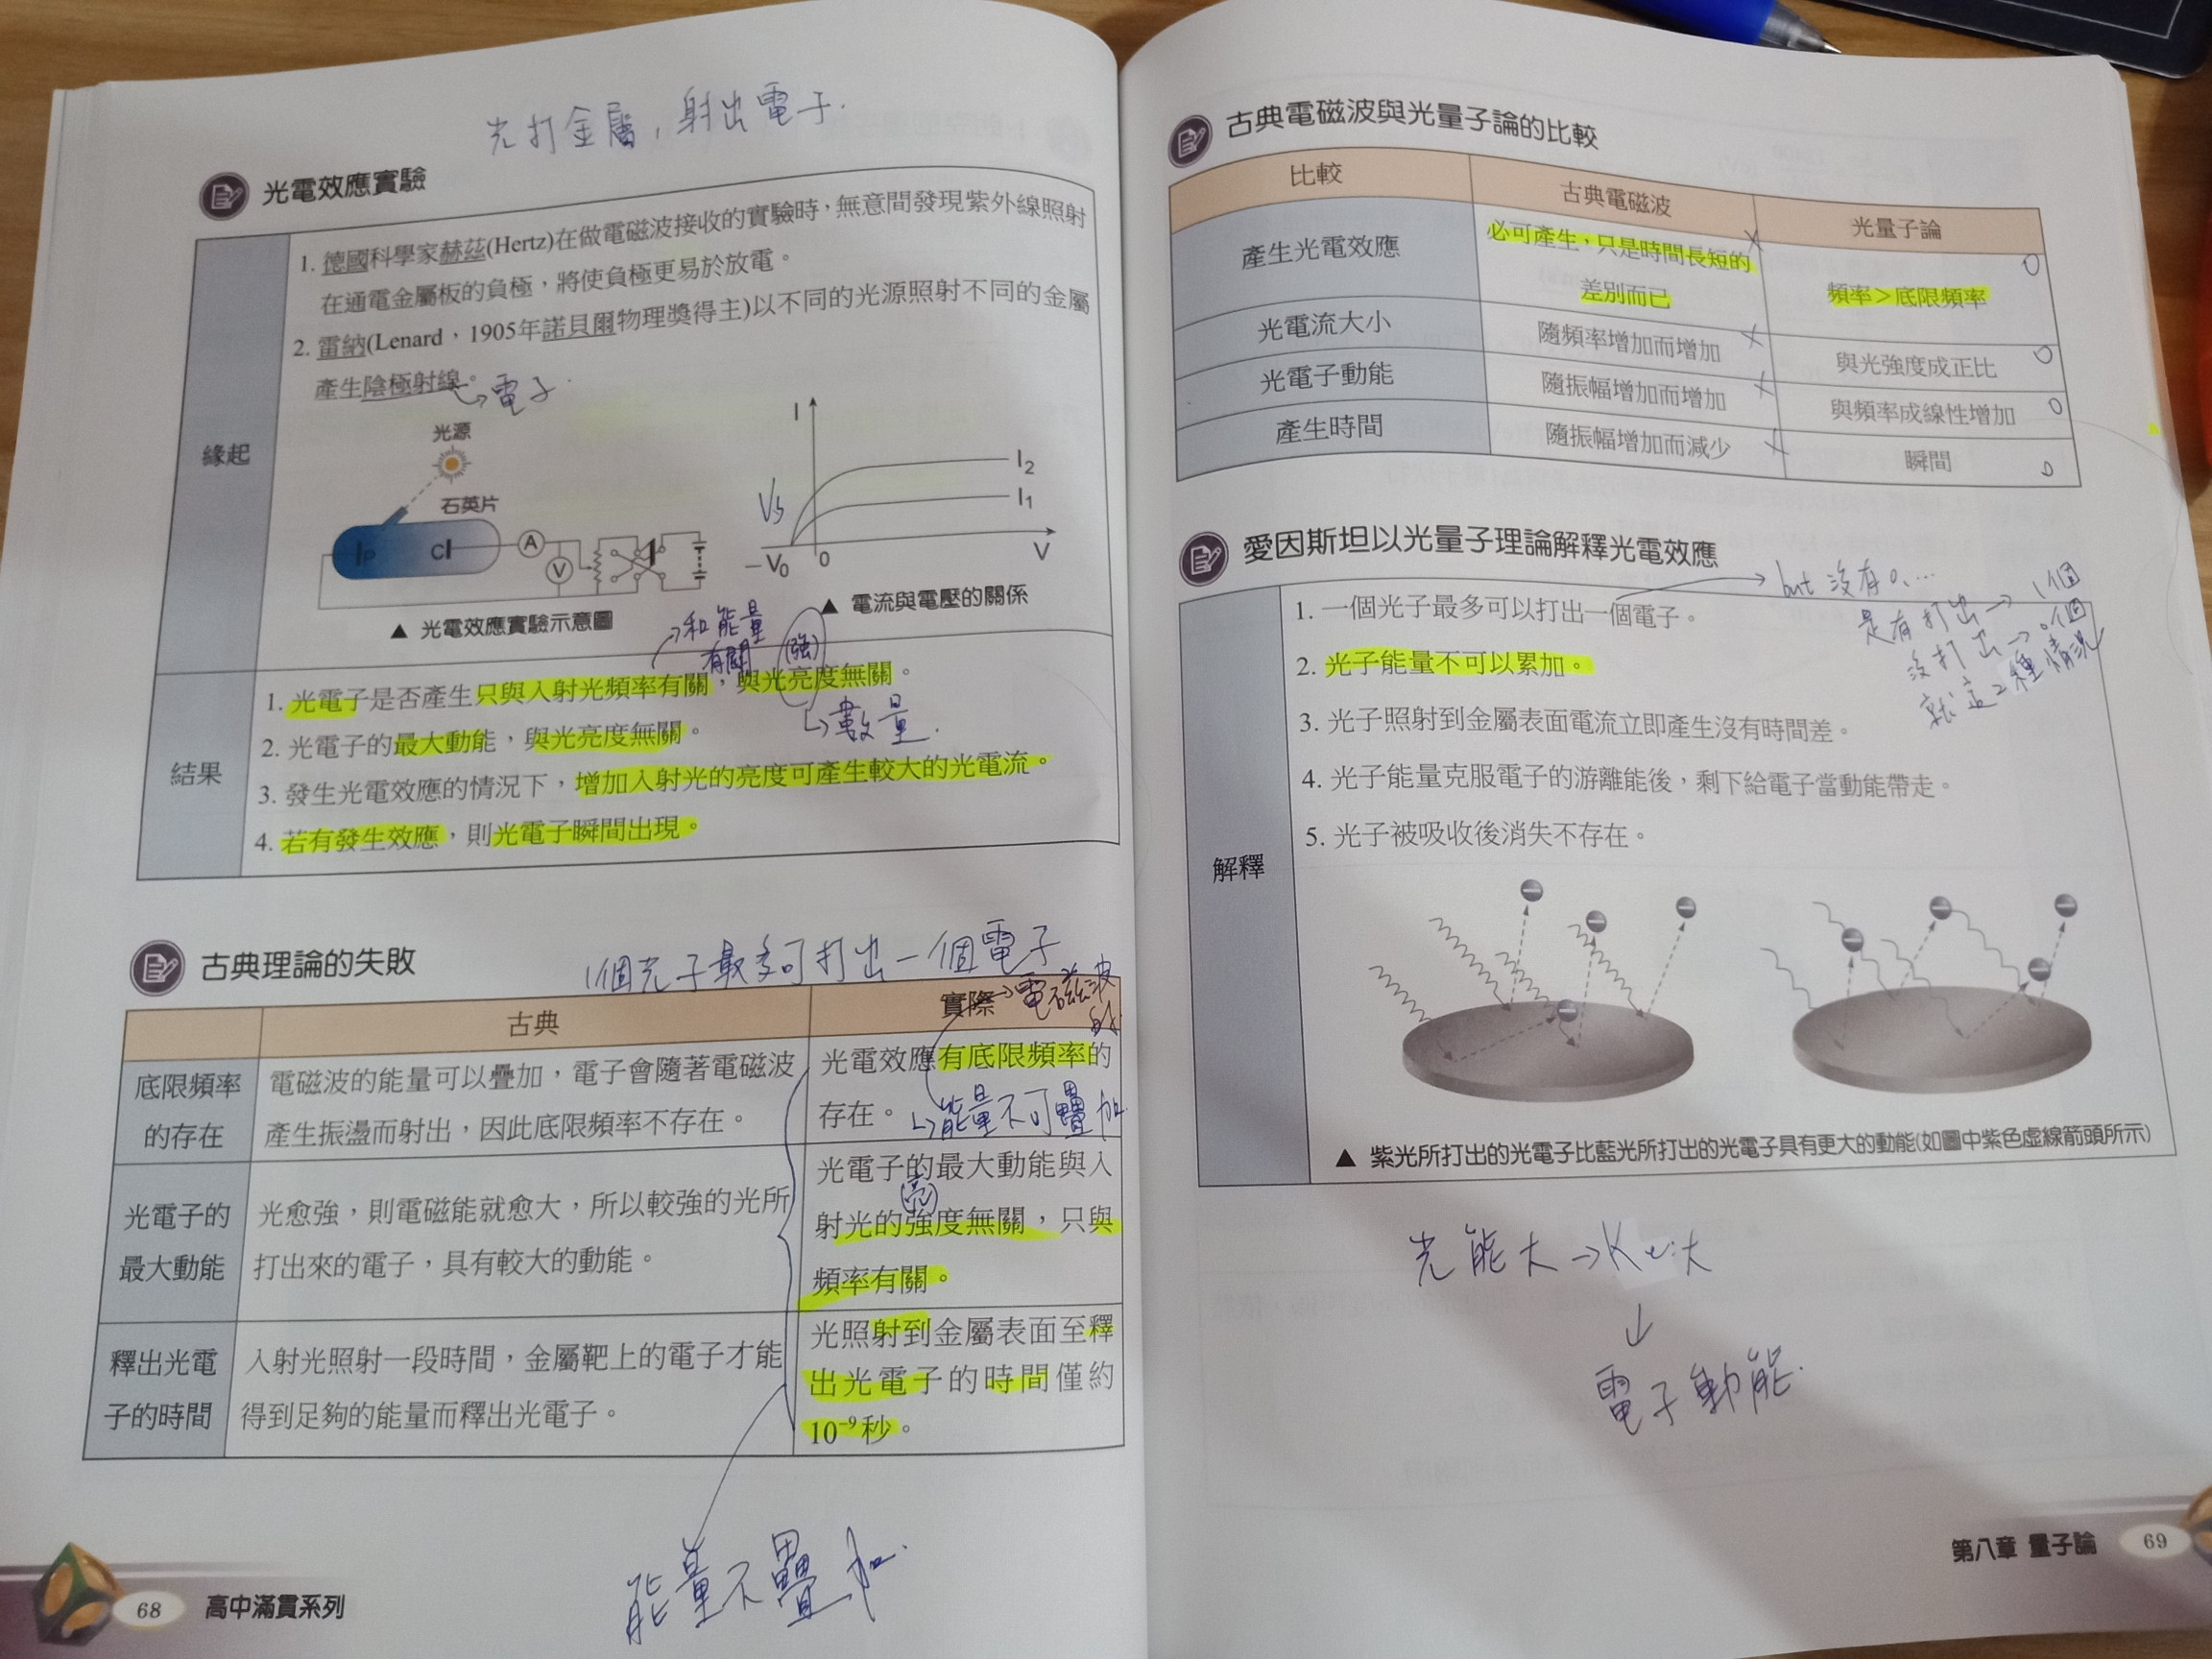 光打金屬，射出電子．
光電效應實驗
緣起
1. 德國科學家赫茲(Hertz)在做電磁波接收的實驗時，無意間發現紫外線照射
在通電金屬板的負極，將使負極更易於放電。
2. 雷納(Lenard，1905年諾貝爾物理獎得主)以不同的光源照射不同的金屬
產生陰極射線。
→電子．
光源
石英片
P
C
A
V
▲ 光電效應實驗示意圖
I
I2
I1
Vs
−V0
0
V
▲ 電流與電壓的關係
→和能量
有關
(強)
結果
1. 光電子是否產生只與入射光頻率有關，與光亮度無關。
↳數量．
2. 光電子的最大動能，與光亮度無關。
3. 發生光電效應的情況下，增加入射光的亮度可產生較大的光電流。
4. 若有發生效應，則光電子瞬間出現。
古典理論的失敗
1個光子最多可打出一個電子
古典
實際
→電磁波
底限頻率
的存在
電磁波的能量可以疊加，電子會隨著電磁波
產生振盪而射出，因此底限頻率不存在。
光電效應有底限頻率的
存在。
↳能量不可疊加．
光電子的
最大動能
光愈強，則電磁能就愈大，所以較強的光所
打出來的電子，具有較大的動能。
光電子的最大動能與入
亮
射光的強度無關，只與
頻率有關。
釋出光電
子的時間
入射光照射一段時間，金屬靶上的電子才能
得到足夠的能量而釋出光電子。
光照射到金屬表面至釋
出光電子的時間僅約
10⁻⁹ 秒。
能量不疊加．
68
高中滿貫系列
古典電磁波與光量子論的比較
比較
古典電磁波
光量子論
產生光電效應
必可產生，只是時間長短的
差別而已
頻率＞底限頻率
光電流大小
隨頻率增加而增加
與光強度成正比
光電子動能
隨振幅增加而增加
與頻率成線性增加
產生時間
隨振幅增加而減少
瞬間
愛因斯坦以光量子理論解釋光電效應
→but 沒有0.…
是有打出→1個
沒打出→0個
就這2種情況
解釋
1. 一個光子最多可以打出一個電子。
2. 光子能量不可以累加。
3. 光子照射到金屬表面電流立即產生沒有時間差。
4. 光子能量克服電子的游離能後，剩下給電子當動能帶走。
5. 光子被吸收後消失不存在。
▲ 紫光所打出的光電子比藍光所打出的光電子具有更大的動能(如圖中紫色虛線箭頭所示)
光能大→Ke大
↓
電子動能．
第八章 量子論
69